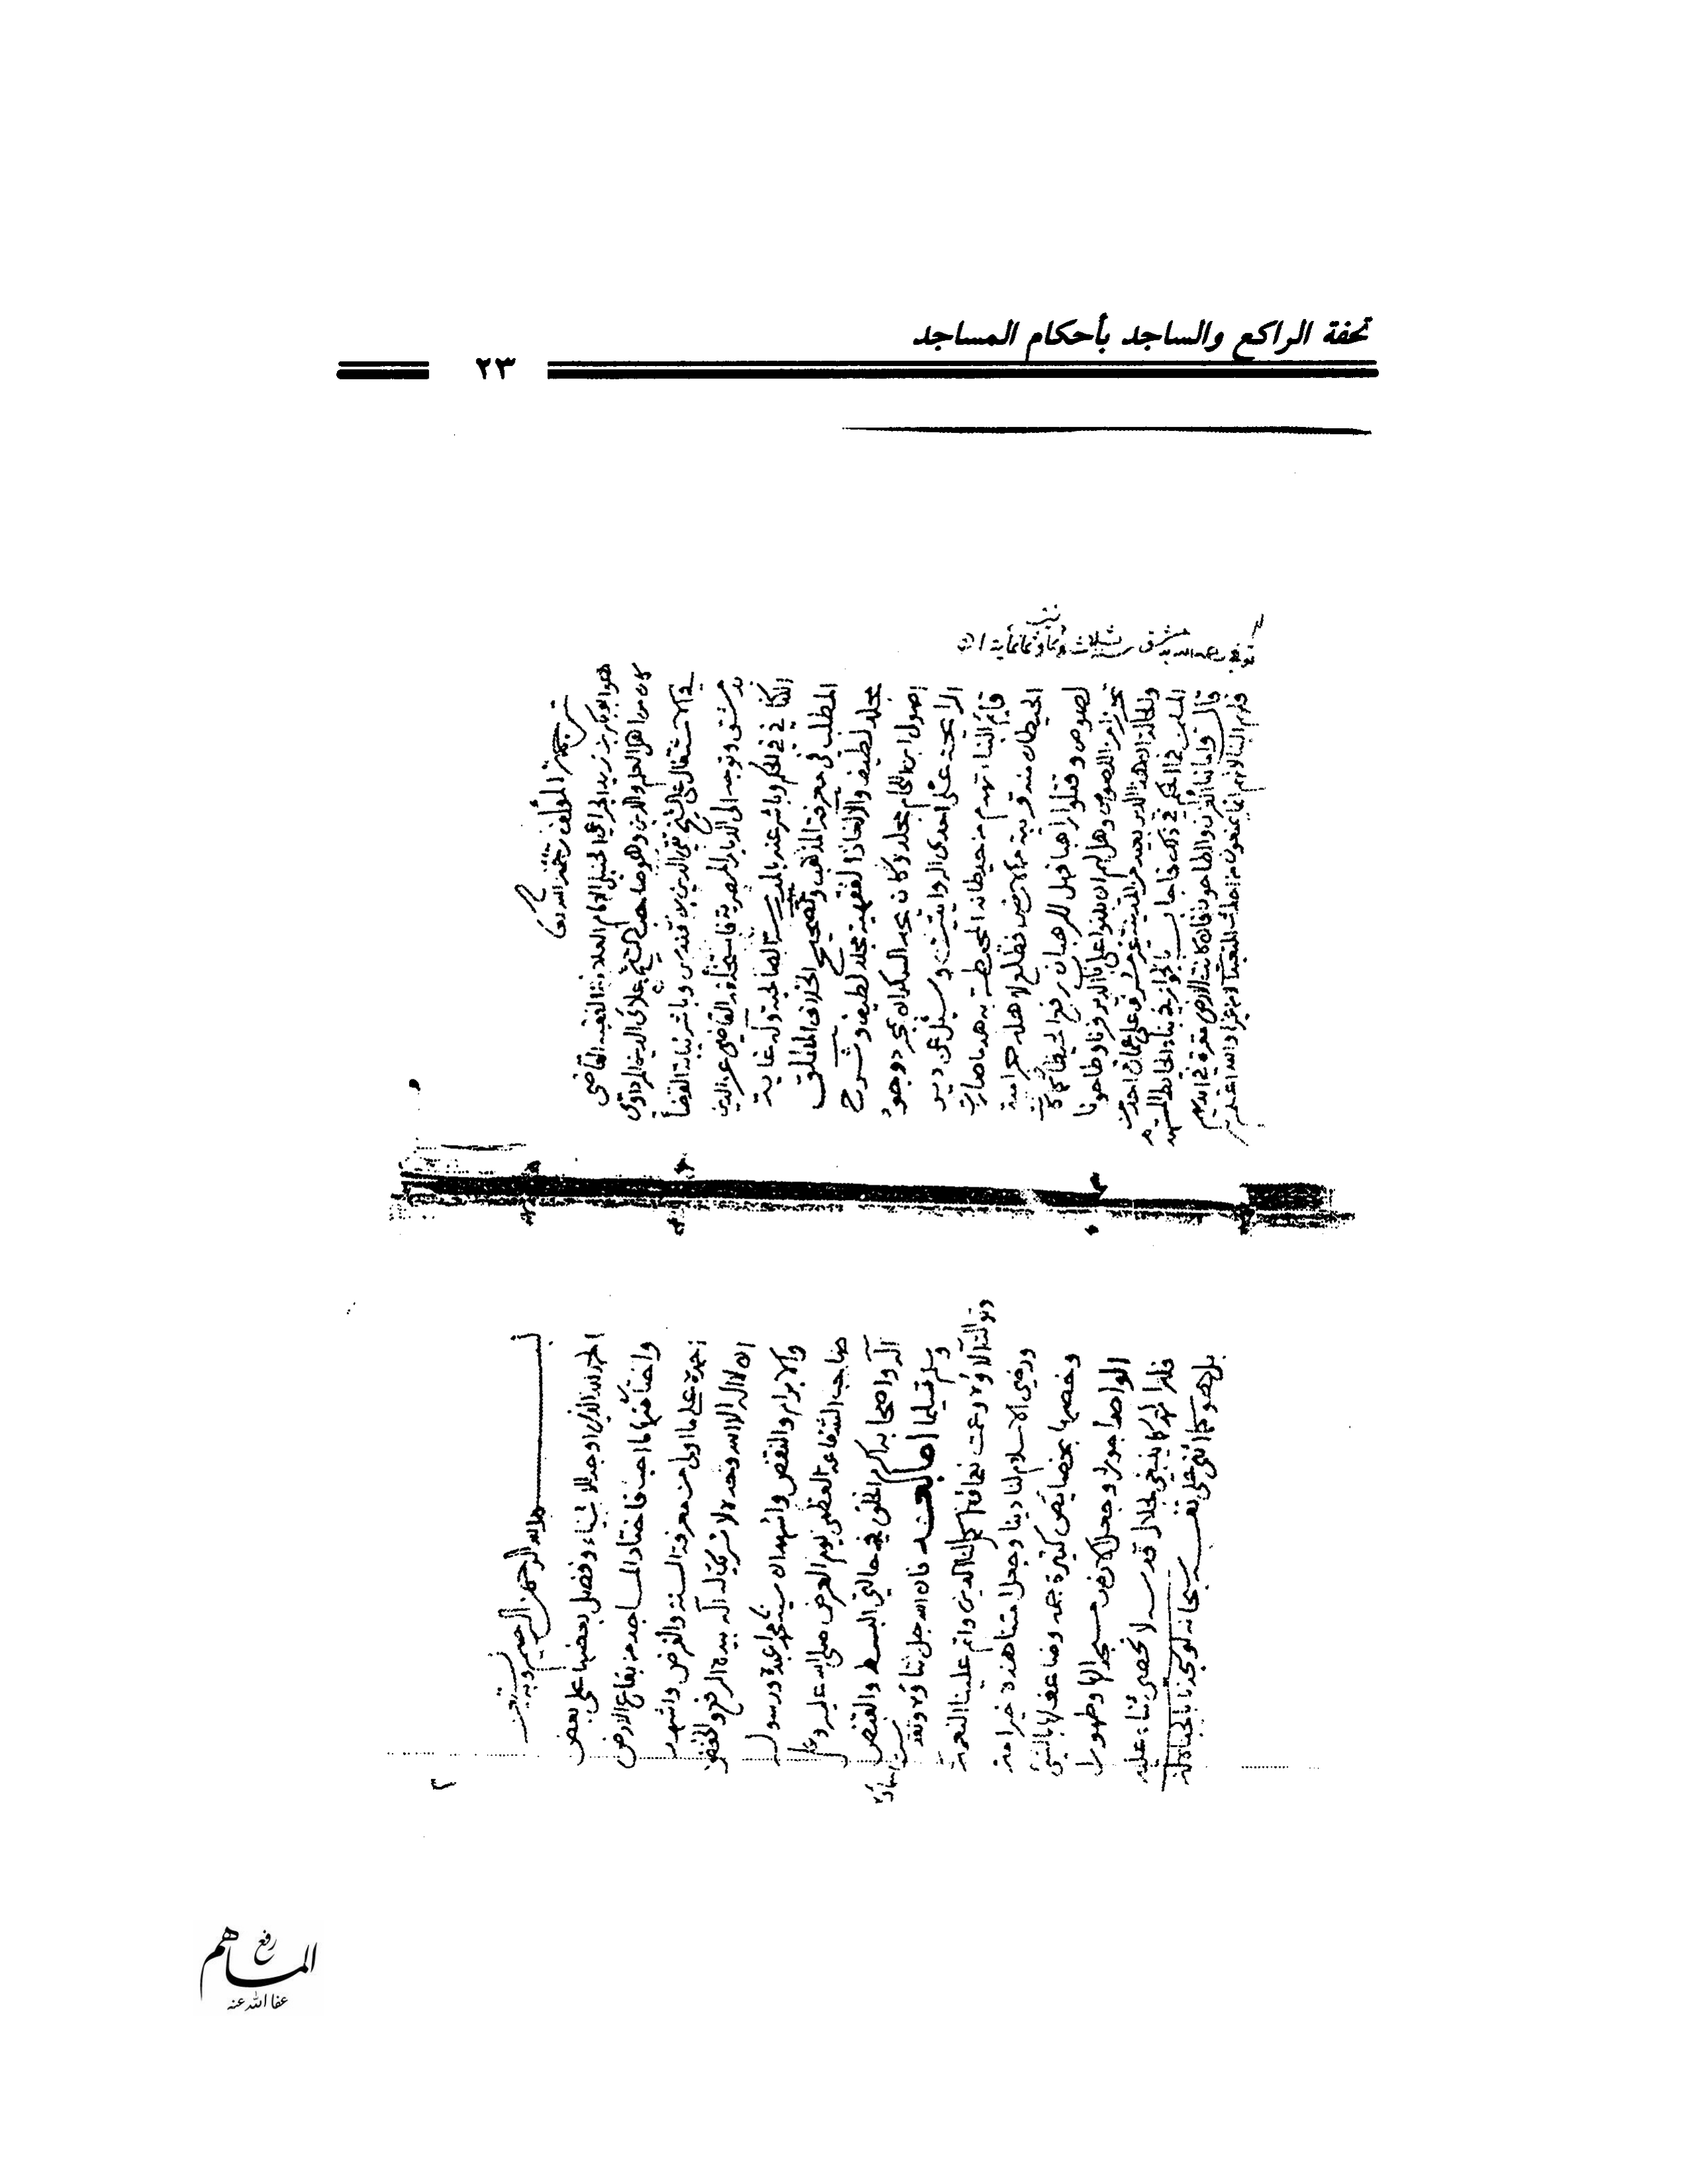 تحفة الراكع والساجد بأحكام المساجد
٢٣
ترجمة المؤلف رحمه الله تعالى
هو ابو بكر بن زيد الجراعي الحنبلي الامام العلامة الفقيه القاضي
كان من اهل العلم والدين وهو صاحب الشيخ علاء الدين المرداوي
في الاشتغال على الشيخ تقي الدين بن قندس وباشر نيابة القضا
بدمشق وتوجه الى الديار المصرية فاستخلفه القاضي عز الدين
الكناني في الحكم وباشر عنه بالمدرسة الصالحية وله غاية
المطلب في معرفة المذهب وتصحيح الخلاف المطلق
مجلد لطيف والالغاز الفقهية مجلد لطيف وشرح
اصول ابن اللحام مجلد وكان
الرايحة على احدى الروايتين وسئل عن دير
قايم البناء تهدم من حيطانه المحيطة به هدما صارت
الحيطان منه قريبة من الارض فطلع لاهله حرامية
لصوص وقتلوا راهبا فهل للرهبان رفع الحيطان
تحرزا من اللصوص وهل لهم ان يبنوا على باب الدير فرنا وطاحونا
والحالة ان هذا الدير بعيد من المدينة غير مشرف على عمارة احد من
المسلمين فما الحكم في ذلك فاجاب بالجواز في بناء الحائط المنهدم
قال واما بناء الفرن والطاحون فان كانت الارض مقرة في ايديهم
فلهم البناء لانهم انما يمنعون من احداث المتعبدات لا من غيرها والله اعلم
بسم الله الرحمن الرحيم وبه نستعين
الحمد لله الذي اوجد الاشياء وفضل بعضها على بعض
واختار منها ما احب فاختار المساجد من بقاع الارض
احمده على ما اولى من معرفة السنة والفرض واشهد
ان لا اله الا الله وحده لا شريك له اله بيده الرفع والخفض
والابرام والنقض واشهد ان سيدنا محمدا عبده ورسوله
صاحب الشفاعة العظمى يوم العرض صلى الله عليه وعلى
آله واصحابه اكرم الخلق في حالتي البسط والقبض
وسلم تسليما اما بعد فان الله جل ثناؤه وتقدست اسماؤه
وتوالت آلاؤه وعمت نعماؤه اكمل لنا الدين واتم علينا النعمة
ورضي الاسلام لنا دينا وجعل امتنا هذه خير امة
وخصها بخصايص كثيرة جمة وضاعف لها بالنبي
الواضع اجورا وجعل الارض مسجدا لها وطهورا
فله الحمد كما ينبغي لجلال قدسه لا نحصي ثناء عليه
بل هو كما اثنى على نفسه سبحانه
٢
رفع
عفا الله عنه